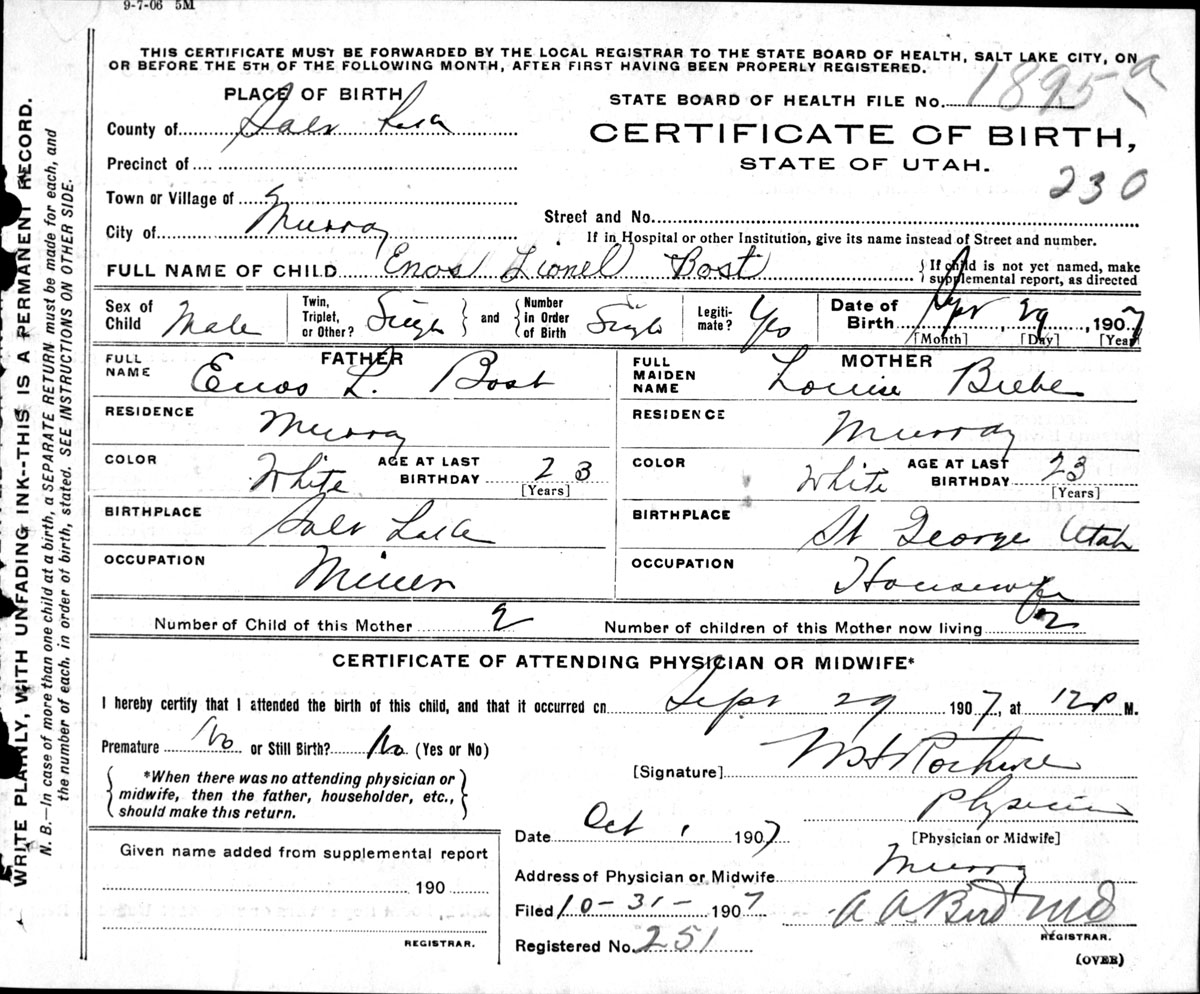 9-7-06 5M
THIS CERTIFICATE MUST BE FORWARDED BY THE LOCAL REGISTRAR TO THE STATE BOARD OF HEALTH, SALT LAKE CITY, ON
OR BEFORE THE 5TH OF THE FOLLOWING MONTH, AFTER FIRST HAVING BEEN PROPERLY REGISTERED.
PLACE OF BIRTH
County of Salt Lake
Precinct of
Town or Village of
City of Murray
STATE BOARD OF HEALTH FILE No. 1895 a
CERTIFICATE OF BIRTH,
STATE OF UTAH.
230
Street and No.
If in Hospital or other Institution, give its name instead of Street and number.
FULL NAME OF CHILD Enos Lionel Bost
If child is not yet named, make
supplemental report, as directed
Sex of Child Male
Twin, Triplet, or Other? Single and Number in Order of Birth Single
Legiti-mate? Yes
Date of Birth Sept 29, 1907
[Month] [Day] [Year]
FATHER
FULL NAME Enos L. Bost
RESIDENCE Murray
COLOR White AGE AT LAST BIRTHDAY 23
[Years]
BIRTHPLACE Salt Lake
OCCUPATION Miner
MOTHER
FULL MAIDEN NAME Louise Biebe
RESIDENCE Murray
COLOR White AGE AT LAST BIRTHDAY 23
[Years]
BIRTHPLACE St George Utah
OCCUPATION Housewife
Number of Child of this Mother 2 Number of children of this Mother now living 2
CERTIFICATE OF ATTENDING PHYSICIAN OR MIDWIFE*
I hereby certify that I attended the birth of this child, and that it occurred on Sept 29 1907, at 12 P M.
Premature No or Still Birth? No (Yes or No)
*When there was no attending physician or
midwife, then the father, householder, etc.,
should make this return.
[Signature]
Physician
[Physician or Midwife]
Date Oct 1 1907
Address of Physician or Midwife Murray
Filed 10-31- 1907 A A Bird MD
REGISTRAR.
Registered No. 251
(OVER)
Given name added from supplemental report
190
REGISTRAR.
WRITE PLAINLY, WITH UNFADING INK--THIS IS A PERMANENT RECORD.
N. B.—In case of more than one child at a birth, a SEPARATE RETURN must be made for each, and
the number of each, in order of birth, stated. SEE INSTRUCTIONS ON OTHER SIDE.